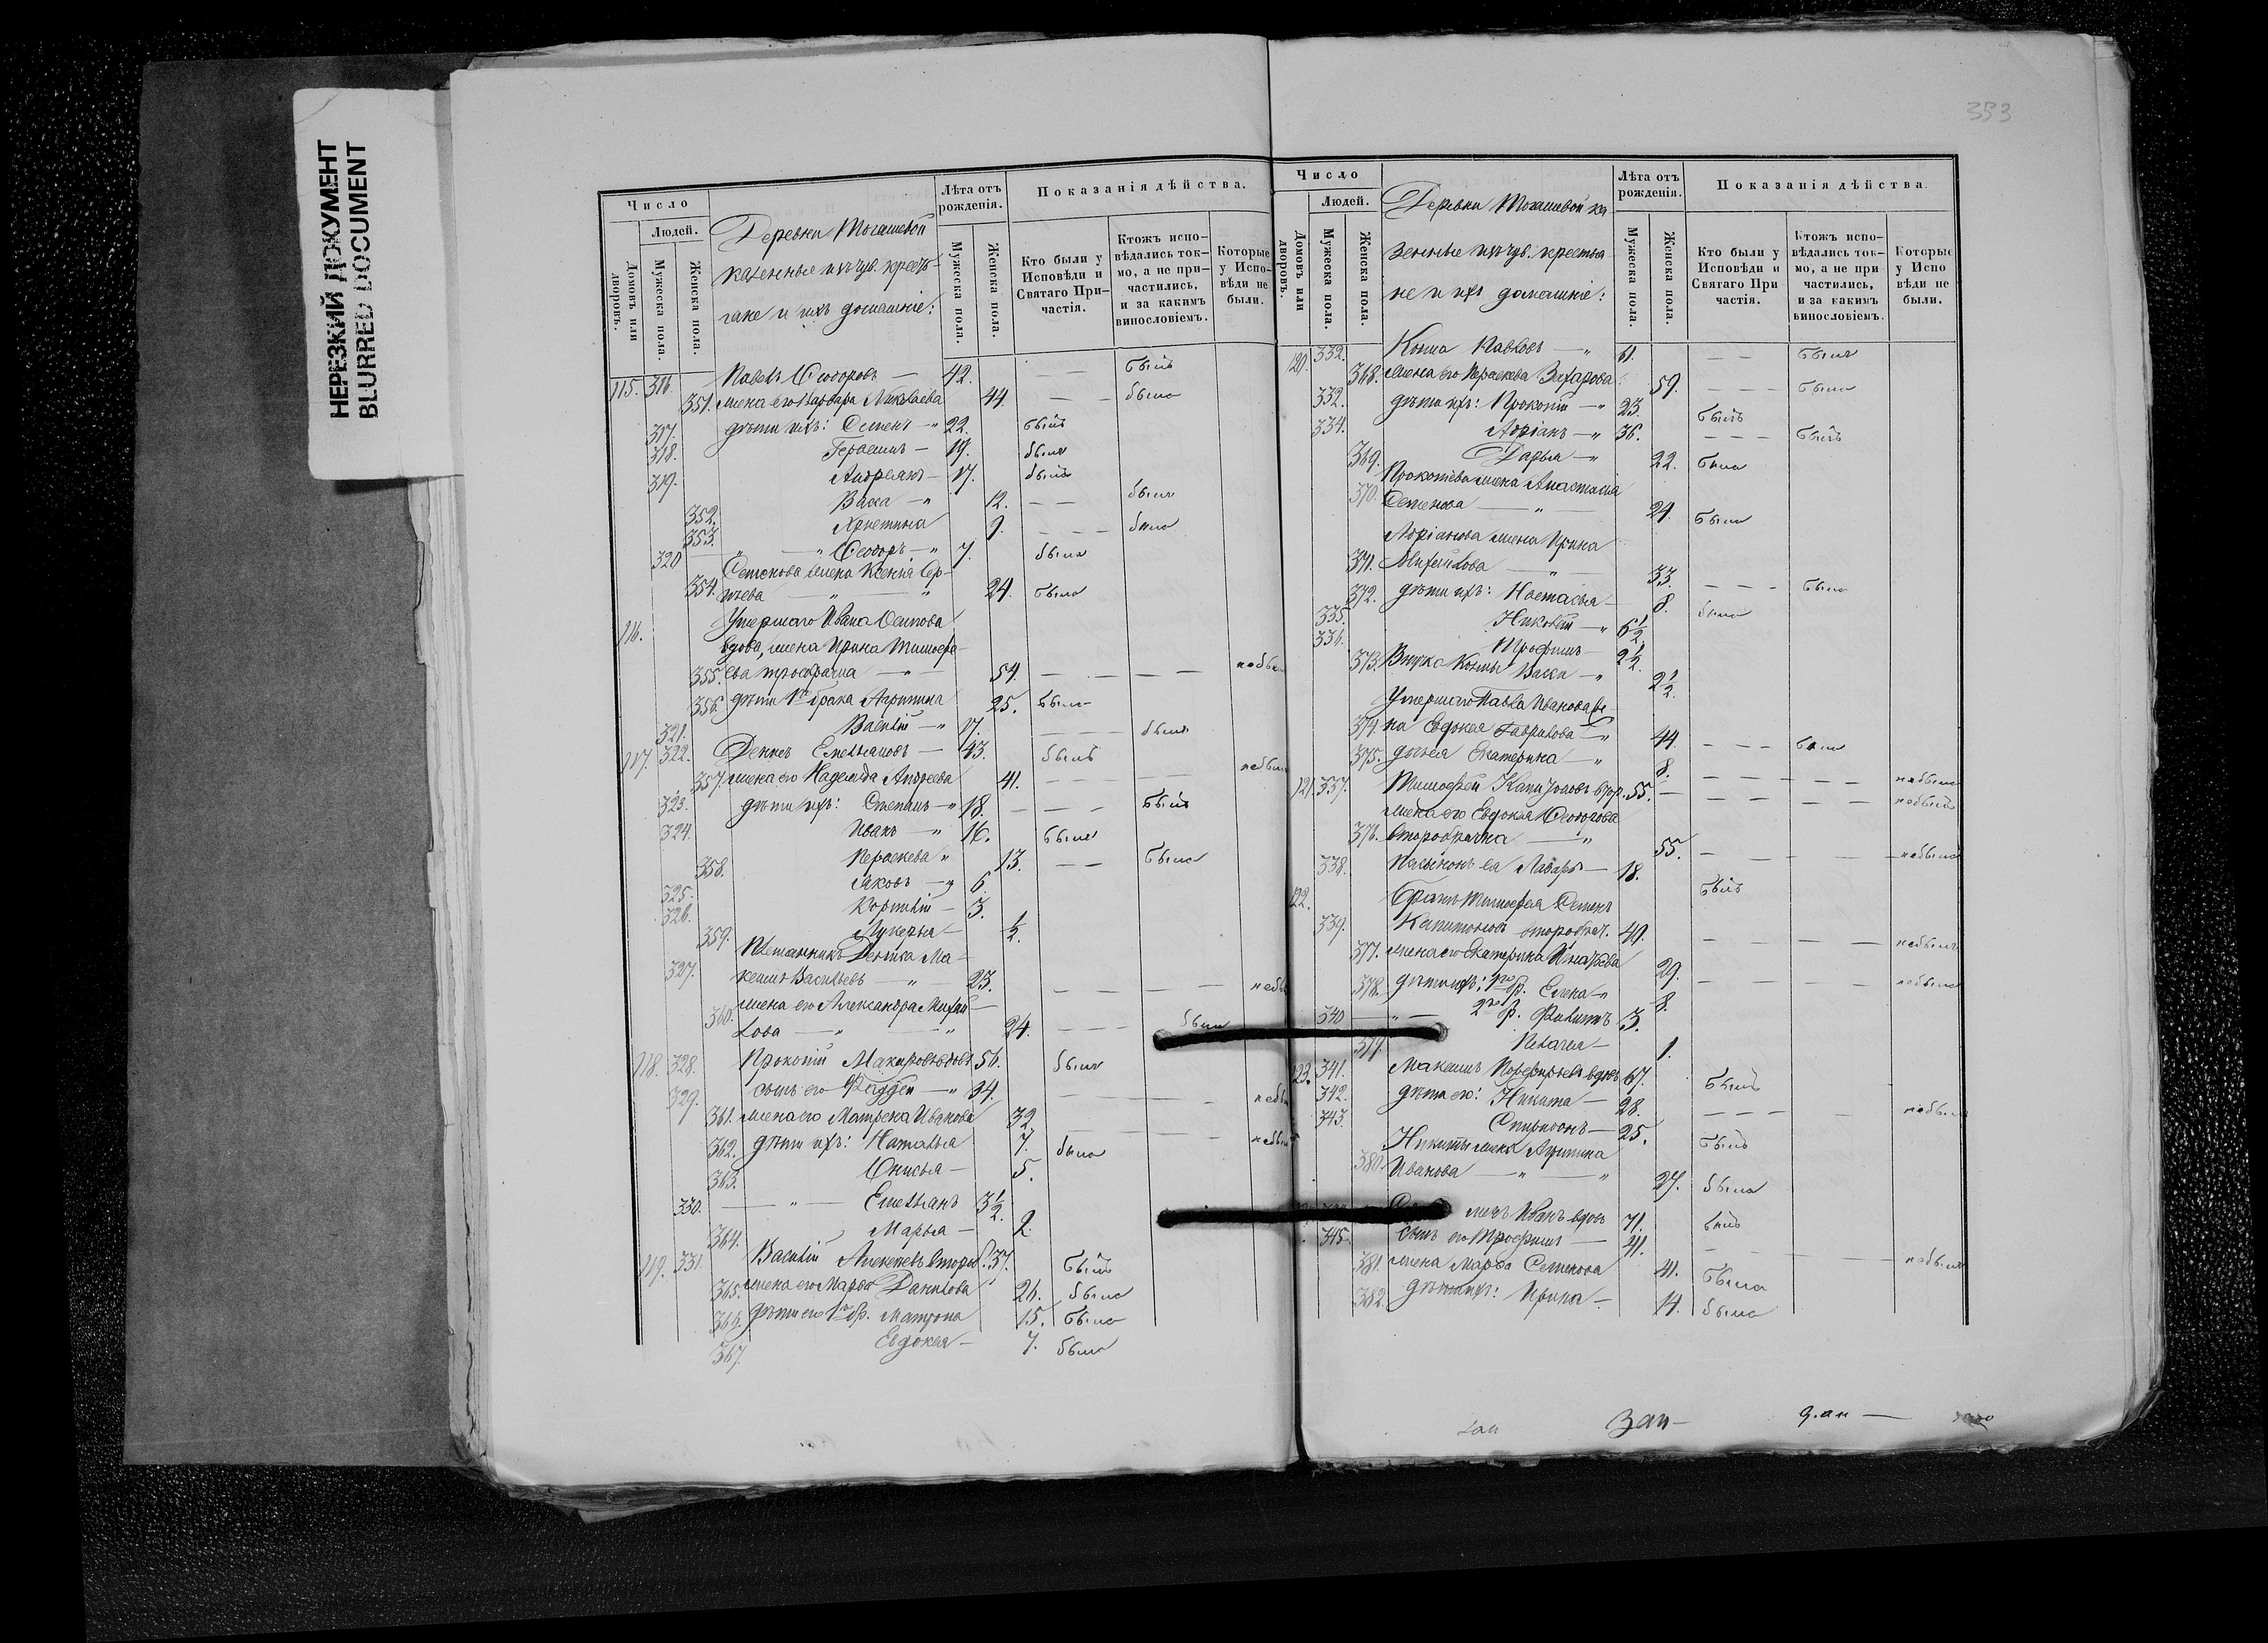 НЕРЕЗКИЙ ДОКУМЕНТ
BLURRED DOCUMENT
353
Число
Людей.
Домовъ или дворовъ.
Мужеска пола.
Женска пола.
Деревни
казенные изъ чув. кресть-
яне и ихъ домашніе:
Лѣта отъ рожденія.
Мужеска пола.
Женска пола.
Показанія дѣйства.
Кто были у Исповѣди и Святаго При-частія.
Ктожъ испо-вѣдались ток-мо, а не при-частились, и за какимъ винословіемъ.
Которые у Испо-вѣди не были.
115. 316. Павелъ Ѳеодоровъ — 42. — — былъ
351. жена его Варвара Николаева 44. — — была
317. дѣти ихъ: Семенъ — " 22. былъ
318. Герасимъ — 19. былъ
319. Андреянъ — 17. былъ
352. Васса — " 12. — — была
353. Христина 9. — — — была
320 " — " Ѳеодоръ — " 7. былъ
Семенова жена Ксенія Сер-
354. гѣева " " 24. была
116. Умершаго Ивана Осипова
вдова, жена Ирина Тимофе-
355. ева — " — 54. — — — — не была
356. дѣти 1го брака Агрипина 25. была
321. Василій — " 17. — — — былъ
117. 322. Денисъ Емельяновъ — 43. былъ
357. жена его Надежда Андреева 41. — — — — не была
323. дѣти ихъ: Степанъ — " 18. — — — былъ
324. Иванъ — " 16. былъ
358. Параскева " 13. — — была
325. Яковъ — " 6.
326. Корнилій — 3.
359. Лукерья — ½.
Племянникъ Дениса Ма-
327. ксимъ Васильевъ — " 23. — — — — — не былъ
жена его Александра Михай-
360. лова — " — " 24. — — — была
118. 328. Прокопій Макаровъ вдовъ 56. былъ
329. сынъ его Фаддей — " 34. — — — — — не былъ
361. жена его Матрена Иванова 32. — — — — не была
362. дѣти ихъ: Наталья 7. была
363. Онисья — 5.
330. — " — Емельянъ 3½.
364. Марья — 2.
119. 331. Василій Алексѣевъ втор. 37. былъ
365. жена его Марѳа Данилова 26. была
366. дѣти его 1го бр. Матрона 15. была
367. Евдокея — 7. была
Число
Людей.
Домовъ или дворовъ.
Мужеска пола.
Женска пола.
Деревни ка-
зенные изъ чув. крестья-
не и ихъ домашніе:
Лѣта отъ рожденія.
Мужеска пола.
Женска пола.
Показанія дѣйства.
Кто были у Исповѣди и Святаго При частія.
Ктожъ испо-вѣдались ток-мо, а не при частились, и за какимъ винословіемъ.
Которые у Испо вѣди не были.
120. 332. Козма Павловъ — " 61. — — былъ
368. жена его Параскева Захарова 59. — — — была
332. дѣти ихъ: Прокопій — " 23. былъ
334. Адріанъ — " 36. — — — былъ
369. Дарья — " 22. была
Прокопіева жена Анастасія
370. Семенова — " — 24. была
Адріанова жена Ирина
371. Михайлова — " — 33. — — — была
372. дѣти ихъ: Настасья — 8. была
335. " 6½.
336. Трофимъ — 2½.
373. Внука Козмы Васса — " 2½.
Умершаго Павла Иванова же-
374. на Евдокея Гаврилова — " 44. — — — была
375. дочь ея Екатерина — " 8. — — — — — не была
121. 337. Тимофей Капитоновъ втор. 55. — — — — — не былъ
жена его Евдокея Ѳеодорова
376. второбрачна — " 55. — — — — не была
338. Пасынокъ ея Лазарь — 18. былъ
122. Братъ Тимофея Семенъ
339. Капитоновъ второбрач. 49. — — — — не былъ
377. жена его Екатерина Игнатьева 29. — — — — не была
378. дѣти ихъ: 1го бр. Елена — " 8.
340 — " — 2го бр. Филипъ 3.
379. Пелагея — 1.
123. 341. Максимъ Порфирьевъ вдовъ 67. былъ
342. дѣти его: Никита — 28. — — — — не былъ
343. Спиридонъ — 25. былъ
Никиты жена Агрипина
380. Иванова — " — " 27. была
Иванъ вдовъ 71. былъ
345. сынъ его Трофимъ — 41. — — — — не былъ
381. жена Марѳа Семенова 41. была
382. дѣти ихъ: Ирина — 14. была